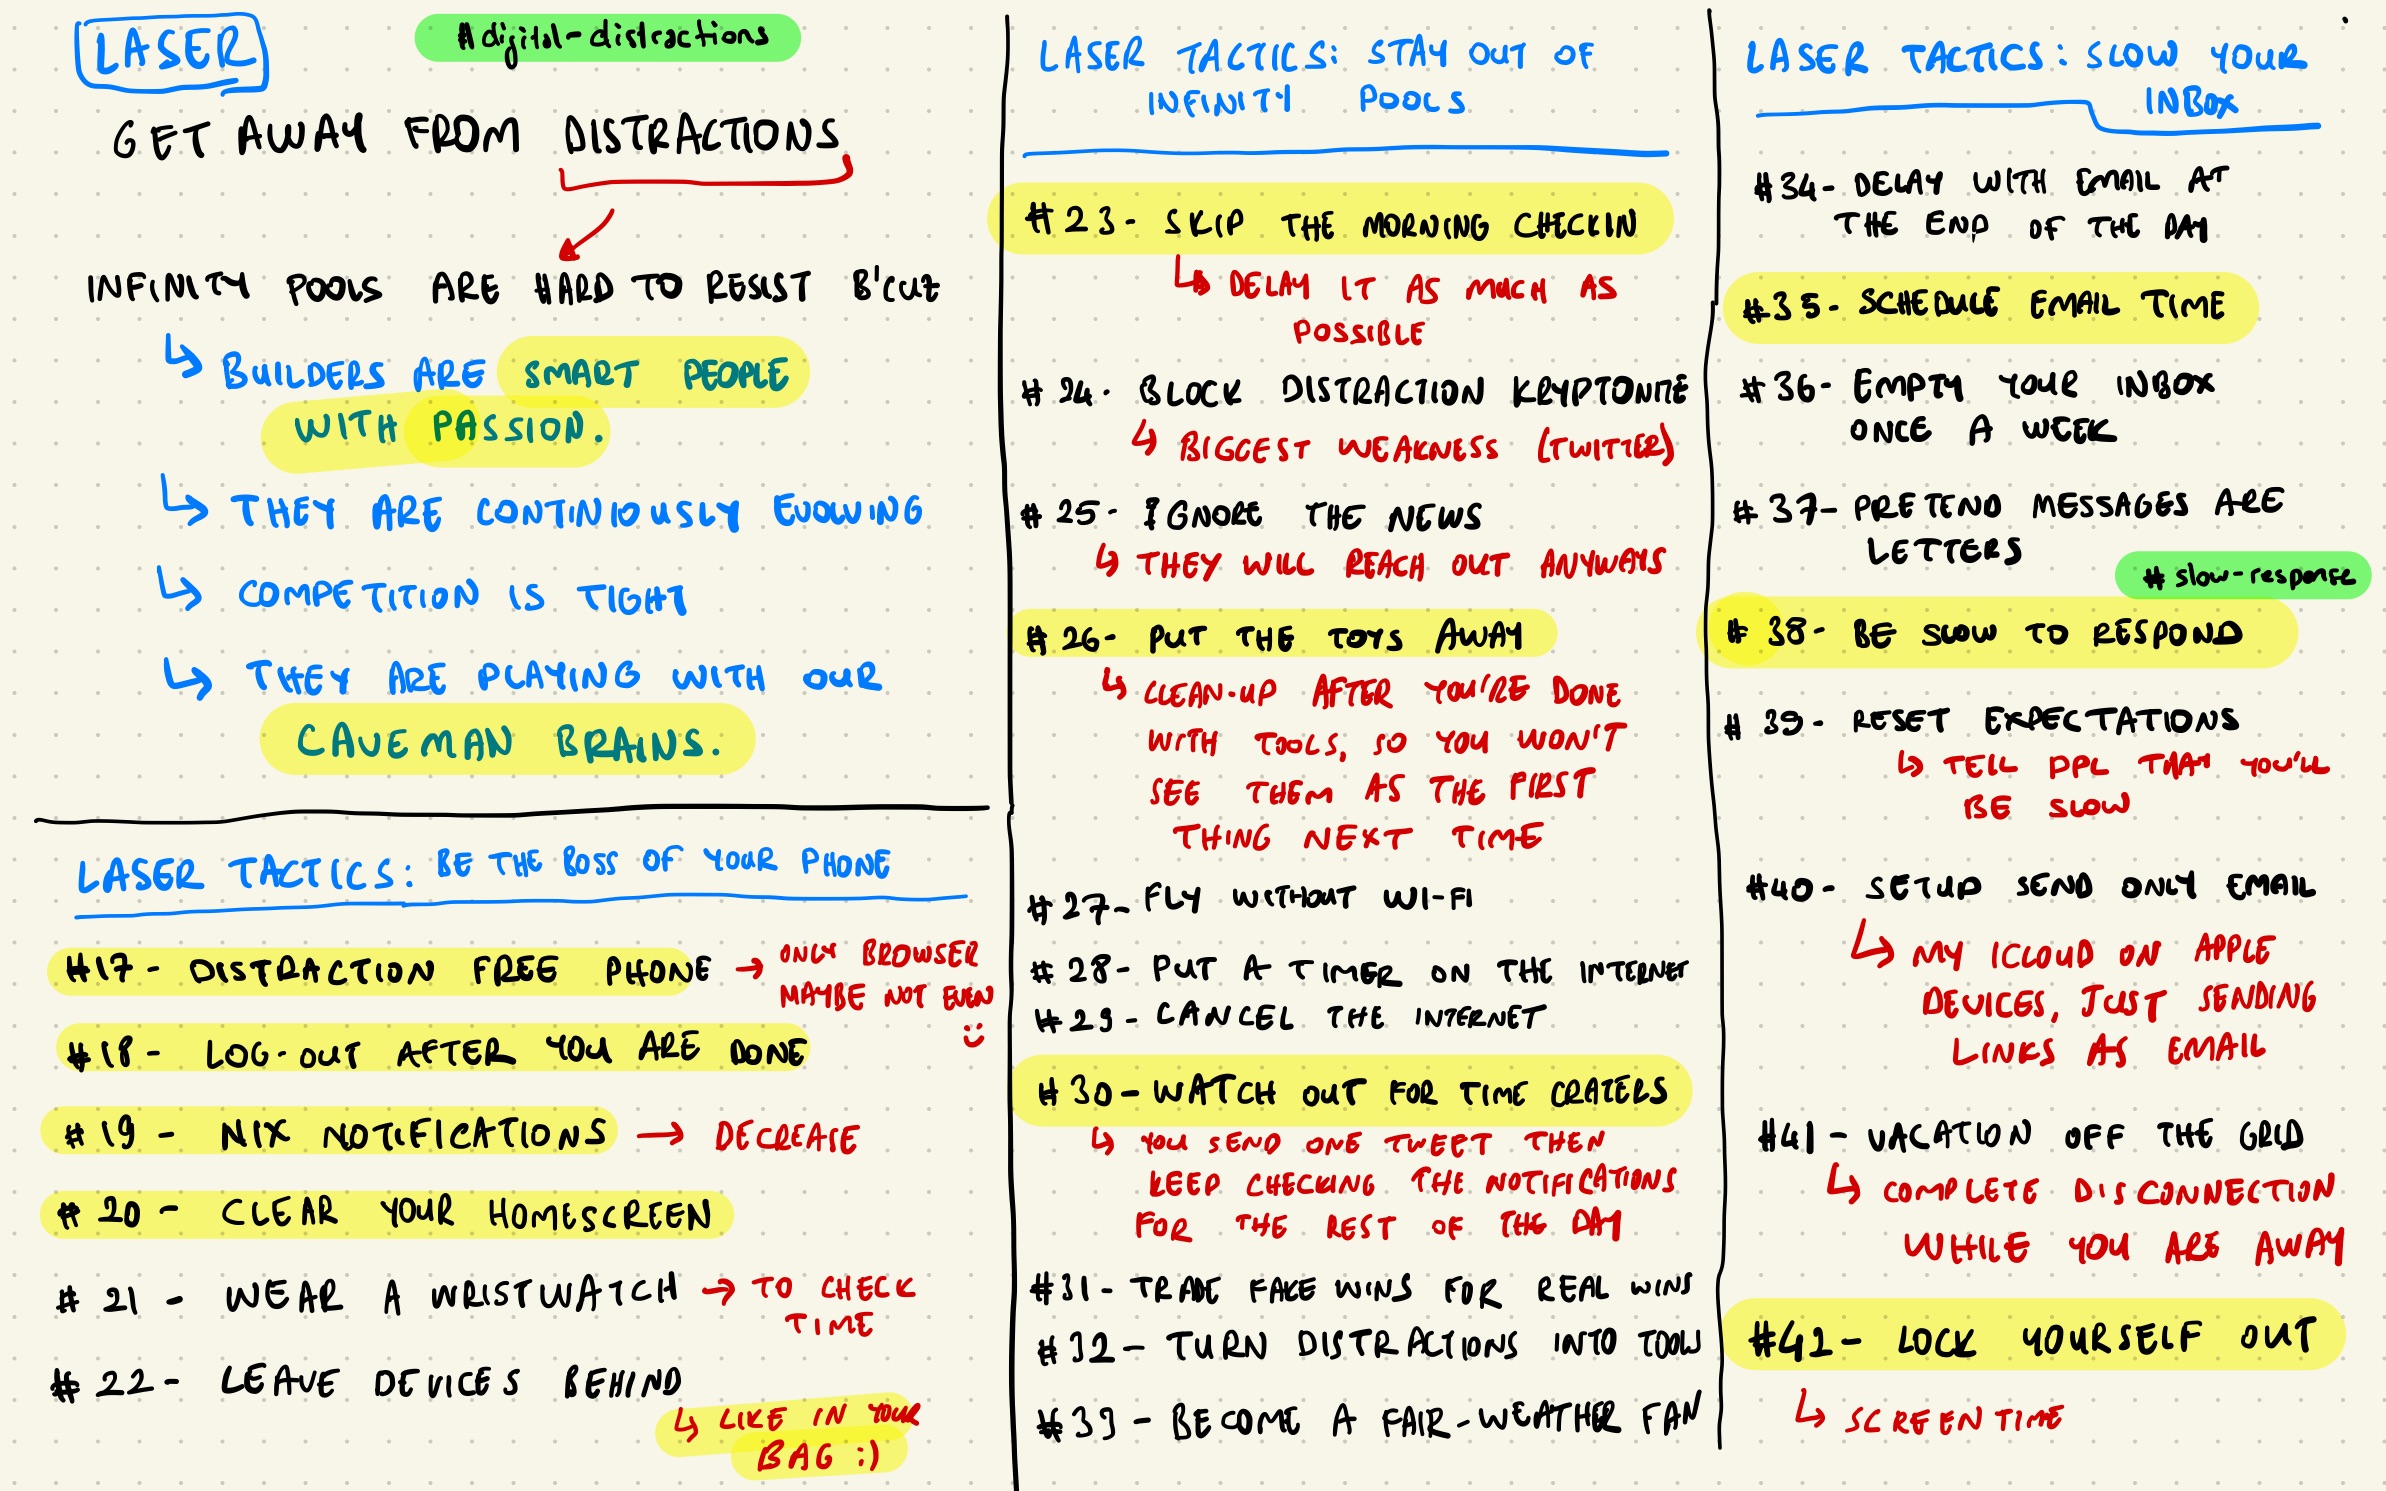 LASER
#digital-distractions
GET AWAY FROM DISTRACTIONS
INFINITY POOLS ARE HARD TO RESIST B'CUZ
↳ BUILDERS ARE SMART PEOPLE
WITH PASSION.
↳ THEY ARE CONTINIOUSLY EVOLVING
↳ COMPETITION IS TIGHT
↳ THEY ARE PLAYING WITH OUR
CAVEMAN BRAINS.
LASER TACTICS: BE THE BOSS OF YOUR PHONE
#17- DISTRACTION FREE PHONE → ONLY BROWSER
MAYBE NOT EVEN
:)
#18- LOG-OUT AFTER YOU ARE DONE
#19- NIX NOTIFICATIONS → DECREASE
#20- CLEAR YOUR HOMESCREEN
#21- WEAR A WRISTWATCH → TO CHECK
TIME
#22- LEAVE DEVICES BEHIND
↳ LIKE IN YOUR
BAG :)
LASER TACTICS: STAY OUT OF
INFINITY POOLS
#23- SKIP THE MORNING CHECKIN
↳ DELAY IT AS MUCH AS
POSSIBLE
#24- BLOCK DISTRACTION KRYPTONITE
↳ BIGGEST WEAKNESS (TWITTER)
#25- IGNORE THE NEWS
↳ THEY WILL REACH OUT ANYWAYS
#26- PUT THE TOYS AWAY
↳ CLEAN-UP AFTER YOU'RE DONE
WITH TOOLS, SO YOU WON'T
SEE THEM AS THE FIRST
THING NEXT TIME
#27- FLY WITHOUT WI-FI
#28- PUT A TIMER ON THE INTERNET
#29- CANCEL THE INTERNET
#30- WATCH OUT FOR TIME CRATERS
↳ YOU SEND ONE TWEET THEN
KEEP CHECKING THE NOTIFICATIONS
FOR THE REST OF THE DAY
#31- TRADE FAKE WINS FOR REAL WINS
#32- TURN DISTRACTIONS INTO TOOLS
#33- BECOME A FAIR-WEATHER FAN
LASER TACTICS: SLOW YOUR
INBOX
#34- DELAY WITH EMAIL AT
THE END OF THE DAY
#35- SCHEDULE EMAIL TIME
#36- EMPTY YOUR INBOX
ONCE A WEEK
#37- PRETEND MESSAGES ARE
LETTERS
#slow-response
#38- BE SLOW TO RESPOND
#39- RESET EXPECTATIONS
↳ TELL PPL THAT YOU'LL
BE SLOW
#40- SETUP SEND ONLY EMAIL
↳ MY ICLOUD ON APPLE
DEVICES, JUST SENDING
LINKS AS EMAIL
#41- VACATION OFF THE GRID
↳ COMPLETE DISCONNECTION
WHILE YOU ARE AWAY
#42- LOCK YOURSELF OUT
↳ SCREENTIME